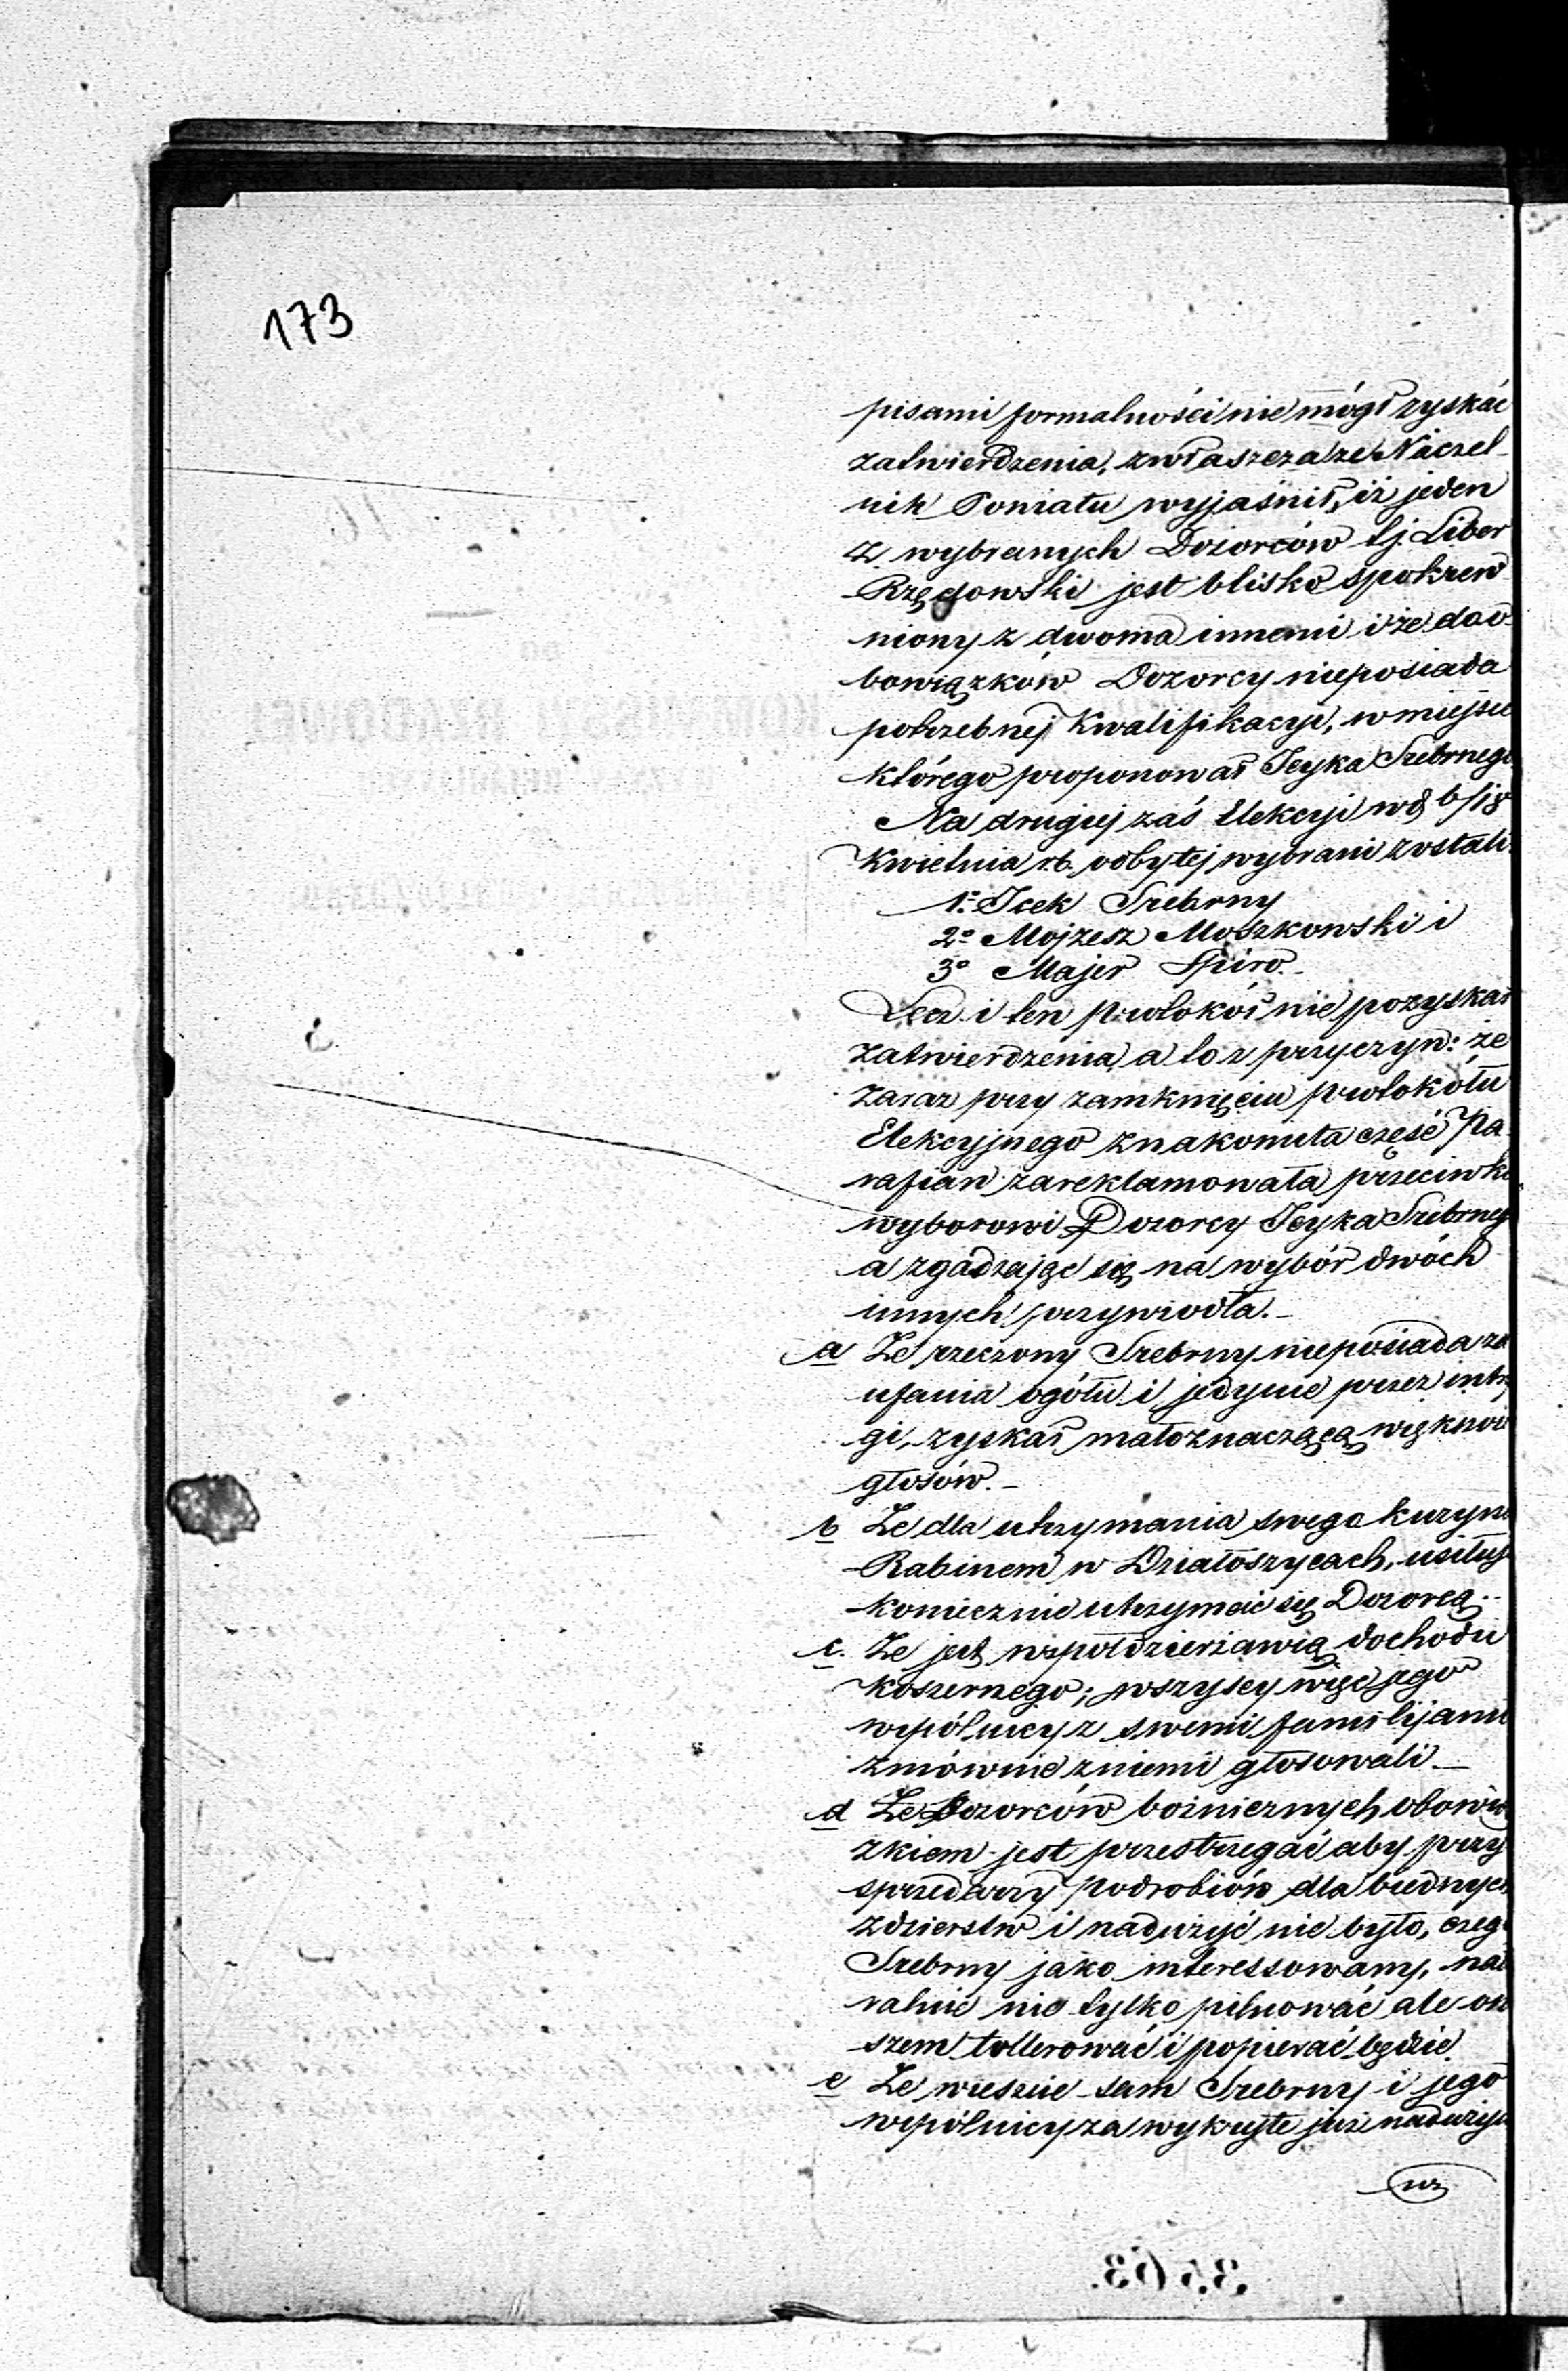 173
pisami formalności nie mógł zyskać
zatwierdzenia, zwłaszcza że Naczel-
nik Powiatu wyjaśnił, iż jeden
z wybranych Dozorców tj. Liber
Rzędowski jest blisko spokrew
niony z dwoma innemi i że do o
bowiązków Dozorcy nieposiada
potrzebnej Kwalifikacyi, w miejsce
którego proponował Icyka Srebrnego
Na drugiej zaś Elekcyi w d 6/18
Kwietnia r.b. odbytej wybrani zostali
1o Icek Srebrny
2o Mojzesz Moszkowski i
3o Majer Spiro.-
Lecz i ten protokół nie pozyskał
zatwierdzenia, a to z przyczyn: że
zaraz przy zamknięciu protokółu
Elekcyjnego znakomita część Pa
rafian zareklamowała przeciwko
wyborowi Dozorcy Icyka Srebrnego
a zgadzając się na wybór dwóch
innych przywiodła.-
a Że rzeczony Srebrny nieposiada za
ufania ogółu i jedynie przez intry
gi, zyskał małoznaczącą większość
głosów.-
b Że dla utrzymania swego kuzyna
Rabinem w Działoszycach, usiłuje
koniecznie utrzymać się Dozorcą.-
c. Że jest współdzierżawcą dochodu
koszernego; wszyscy więc jego
wspólnicy z swemi familijami
zmównie z niemi głosowali.-
d Że Dozorców bożnicznych obowią
zkiem jest przestrzegać aby przy
sprzedarzy podrobiów dla biednych
zdzierstw i nadużyć nie było, czego
Srebrny jako interessowany, natu
ralnie nie tylko pilnować ale ow
szem tollerować i popierać będzie
e Że wreszcie sam Srebrny i jego
wspólnicy za wykryte już nadużycia
3563.